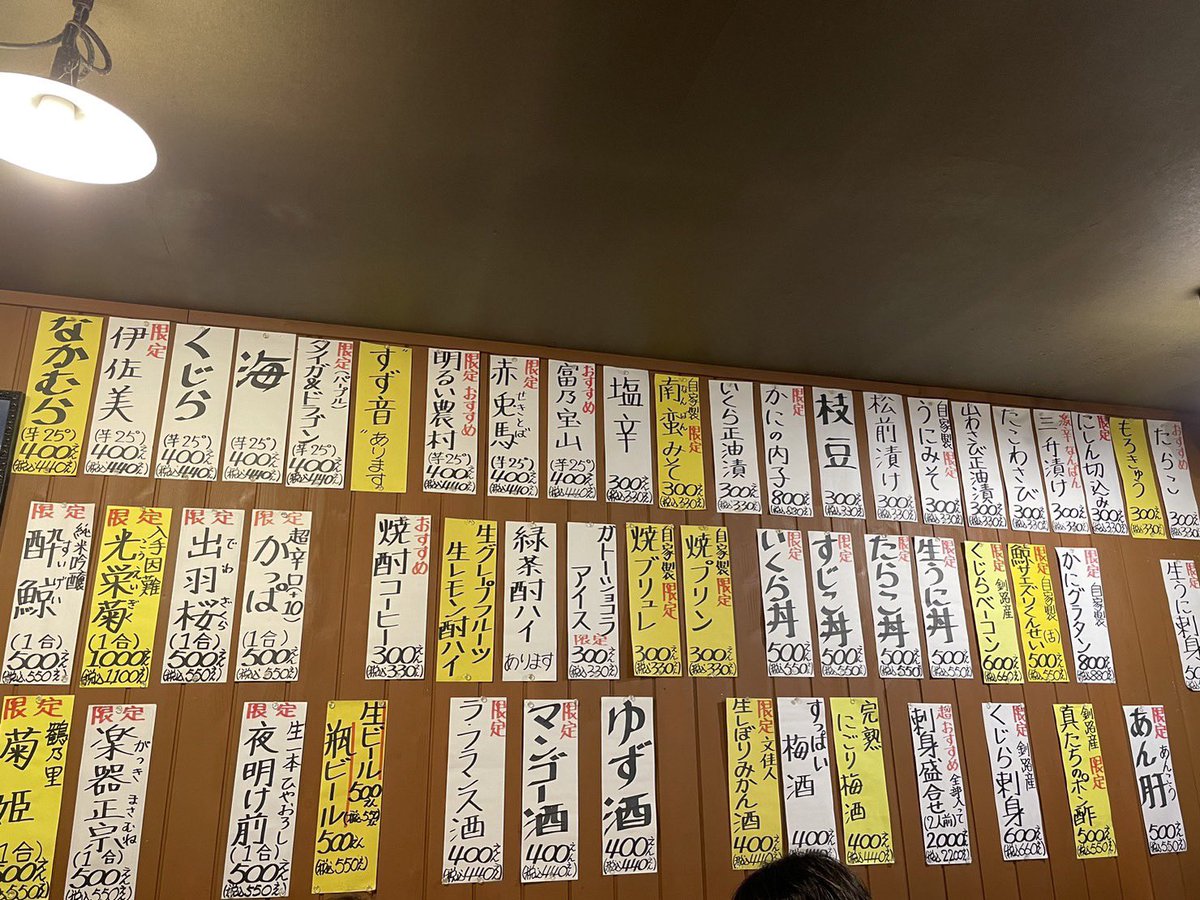 なかむら
(芋25°)
400え
(税込440え)
限定
伊佐美
(芋25°)
400え
(税込440え)
くじら
(芋25°)
400え
(税込440え)
海
(芋25°)
400え
(税込440え)
限定(パープル)
タイガー&ドラゴン
400え
(税込440え)
"すず音"あります。
限定 おすすめ
明るい農村
400え
(税込440え)
限定
赤兎馬
せきとば
(芋25°)
400え
(税込440え)
おすすめ
富乃宝山
(芋25°)
400え
(税込440え)
塩辛
300え
(税込330え)
自家製 限定
南蛮みそ
なんばん
300え
(税込330え)
いくら正油漬
300え
(税込330え)
限定
かにの内子
800え
(税込880え)
枝豆
300え
(税込330え)
松前漬け
300え
(税込330え)
自家製 限定
うにみそ
300え
(税込330え)
山わさび正油漬
300え
(税込330え)
たこわさび
300え
(税込330え)
激辛なんばん
三升漬け
300え
(税込330え)
限定
にしん切込み
300え
(税込330え)
もろきゅう
300え
(税込330え)
たらこ
300え
(税込330え)
限定
純米吟醸
酔鯨
すいげい
(1合)
500え
(税込550え)
限定
入手困難
光栄菊
こうえいぎく
(1合)
1000え
(税込1100え)
限定
出羽桜
でわざくら
(1合)
500え
(税込550え)
限定
超辛口(+10)
かっぱ
(1合)
500え
(税込550え)
おすすめ
焼酎コーヒー
300え
(税込330え)
生グレープフルーツ
生レモン酎ハイ
緑茶酎ハイ
あります
ガトーショコラ
アイス
限定
300え
(税込330え)
自家製 限定
焼ブリュレ
300え
(税込330え)
自家製
焼プリン
限定
300え
(税込330え)
いくら丼
500え
(税込550え)
すじこ丼
500え
(税込550え)
たらこ丼
500え
(税込550え)
生うに丼
500え
(税込550え)
限定 釧路産
くじらベーコン
600え
(税込660え)
限定 自家製
鯨サエズリくんせい
500え
(税込550え)
限定 自家製
かにグラタン
800え
(税込880え)
限定
生うに刺身
限定
鶴乃里
菊姫
(1合)
500え
(税込550え)
限定
楽器正宗
がっきまさむね
(1合)
500え
(税込550え)
限定
生一本ひやおろし
夜明け前
(1合)
500え
(税込550え)
生ビール500え
(税込550え)
瓶ビール
500え
(税込550え)
限定
ラフランス酒
400え
(税込440え)
限定
マンゴー酒
400え
(税込440え)
ゆず酒
400え
(税込440え)
限定 文佳人
生しぼりみかん酒
400え
(税込440え)
すっぱい
梅酒
400え
完熟
にごり梅酒
400え
(税込440え)
超おすすめ
全部入って
刺身盛合せ
(2人前)
2000え
(税込2200え)
限定 釧路産
くじら刺身
600え
(税込660え)
釧路産 限定
真たちのポン酢
500え
(税込550え)
限定
あんこう
あん肝
500え
(税込550え)